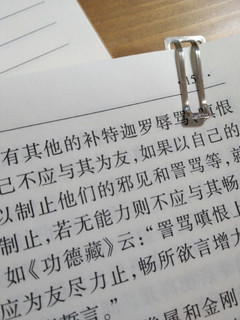 15
有其他的补特迦罗辱骂、嗔恨
己不应与其为友,如果以自己的
以制止他们的邪见和詈骂等,就
制止,若无能力则不应与其畅
如《功德藏》云:“詈骂嗔恨上
应为友尽力止,畅所欲言增力
誓言。”
属和金刚